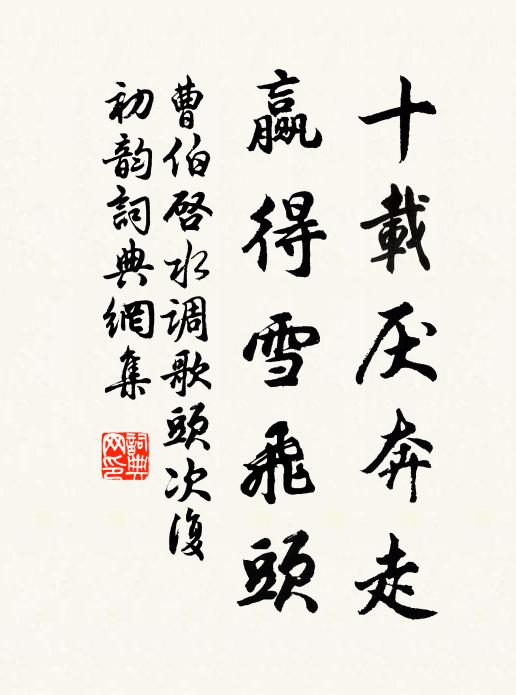 十載厌奔走
贏得雪飛頭
曹伯啓水调歌頭次復
初韵詞典網集
詞典
网印